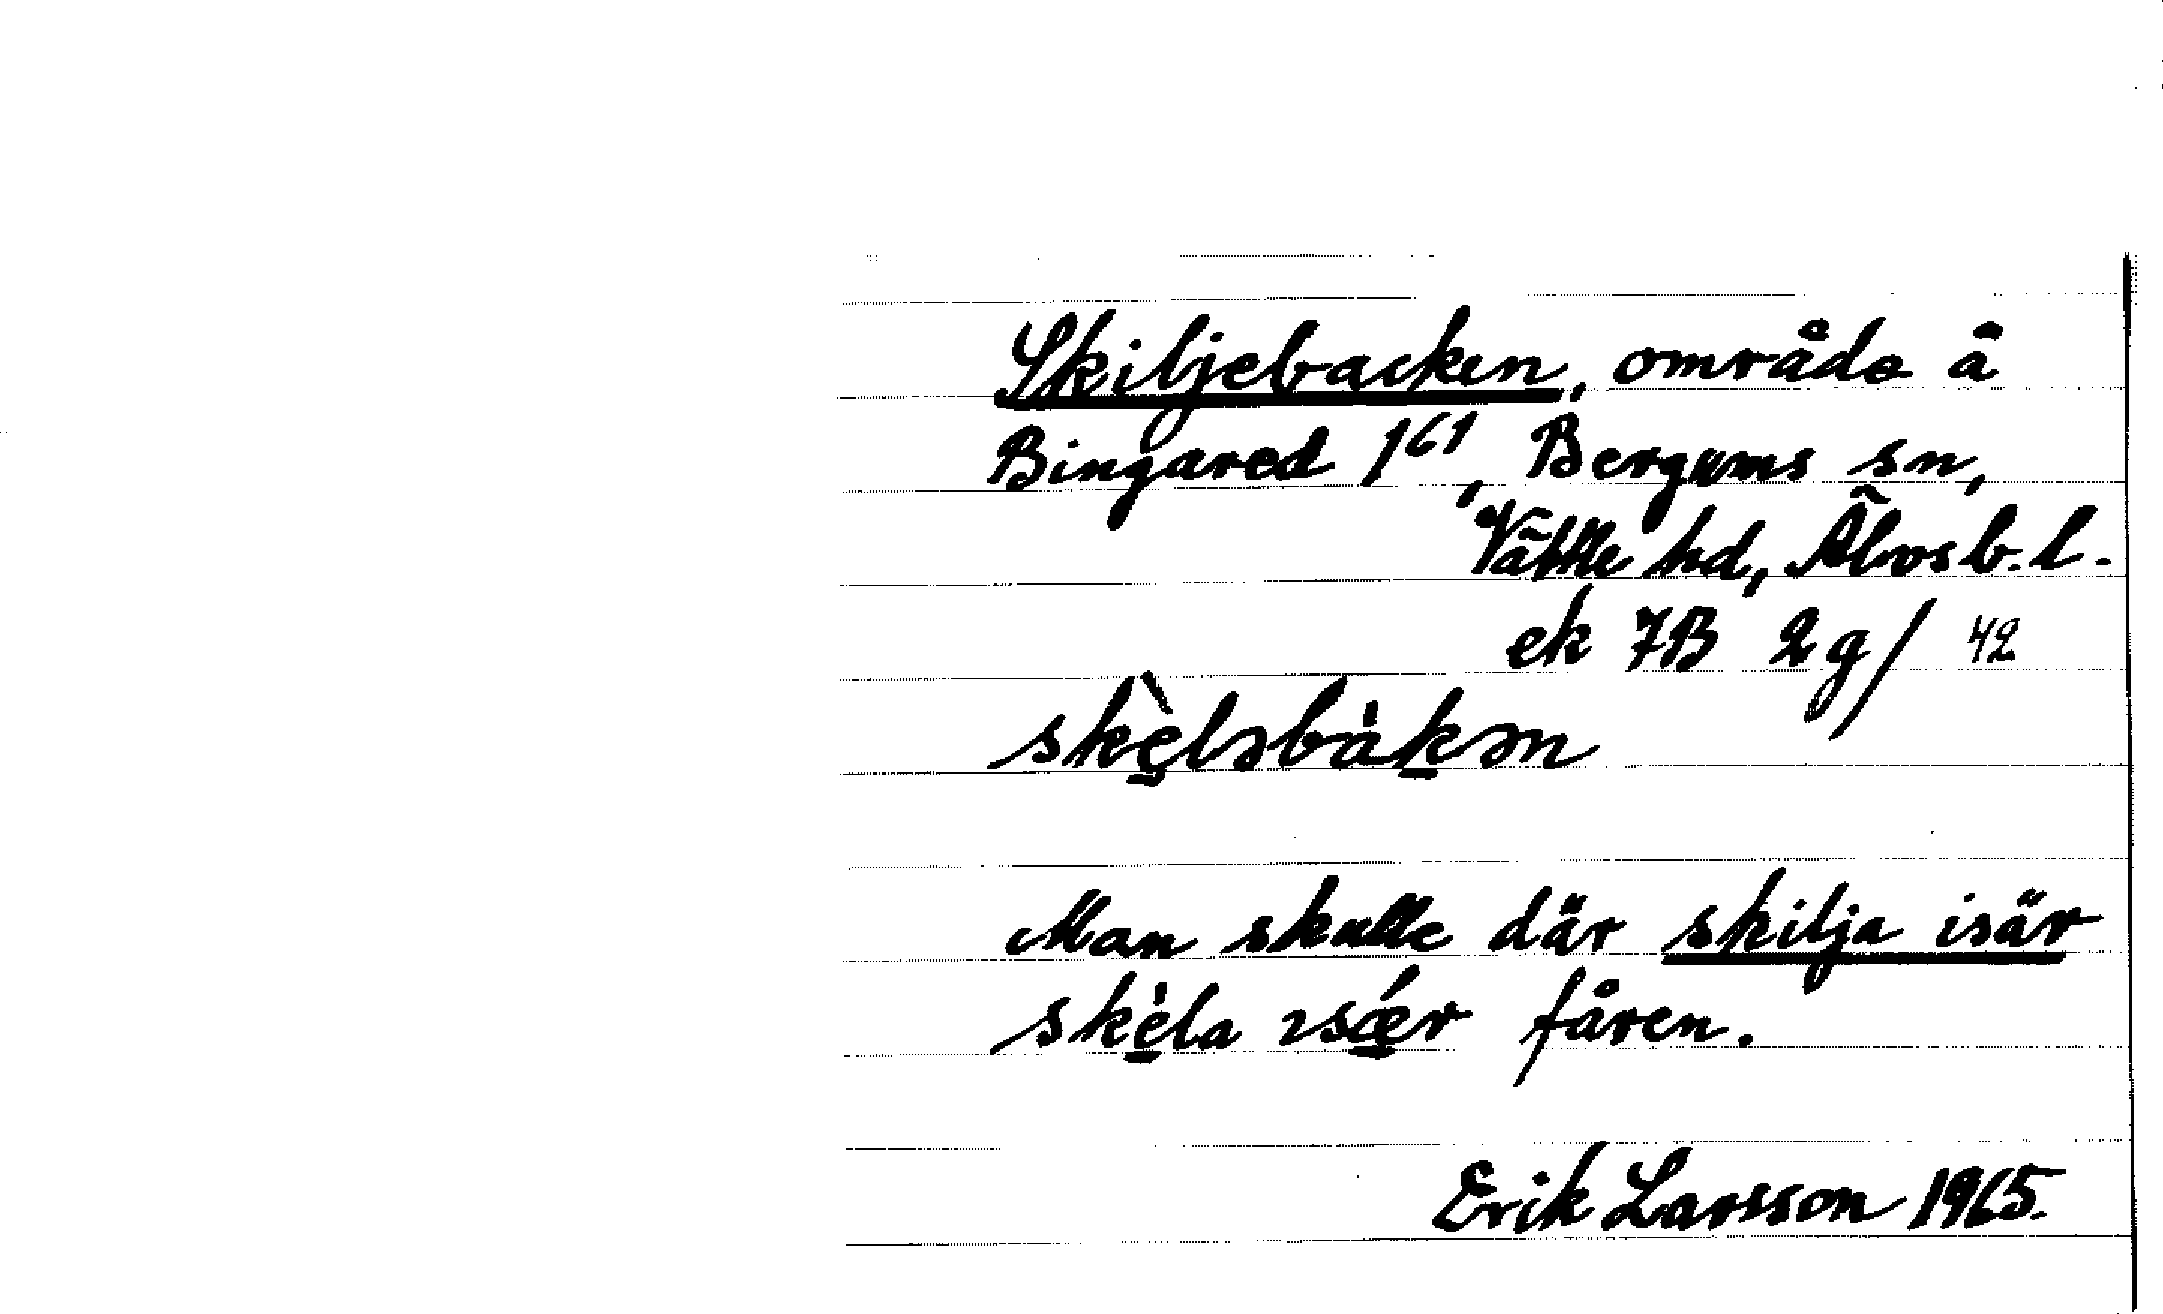 Skiljebacken, område å
Bingared 1⁶¹, Bergums sn,
Vättle hd, Älvsb. l.
ek 7B 2g/ 42
skè̱ləbàḵən
Man skulle där skilja isär
skè̱la ısǽ̱r fåren.
Erik Larsson 1965.